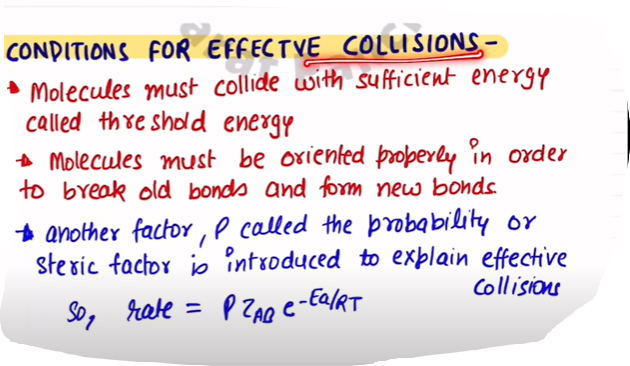 CONDITIONS FOR EFFECTVE COLLISIONS -
Molecules must collide with sufficient energy
called threshold energy
Molecules must be oriented properly in order
to break old bonds and form new bonds.
another factor, P called the probability or
steric factor is introduced to explain effective
collisions
So, rate = P Z_AB e^-Ea/RT